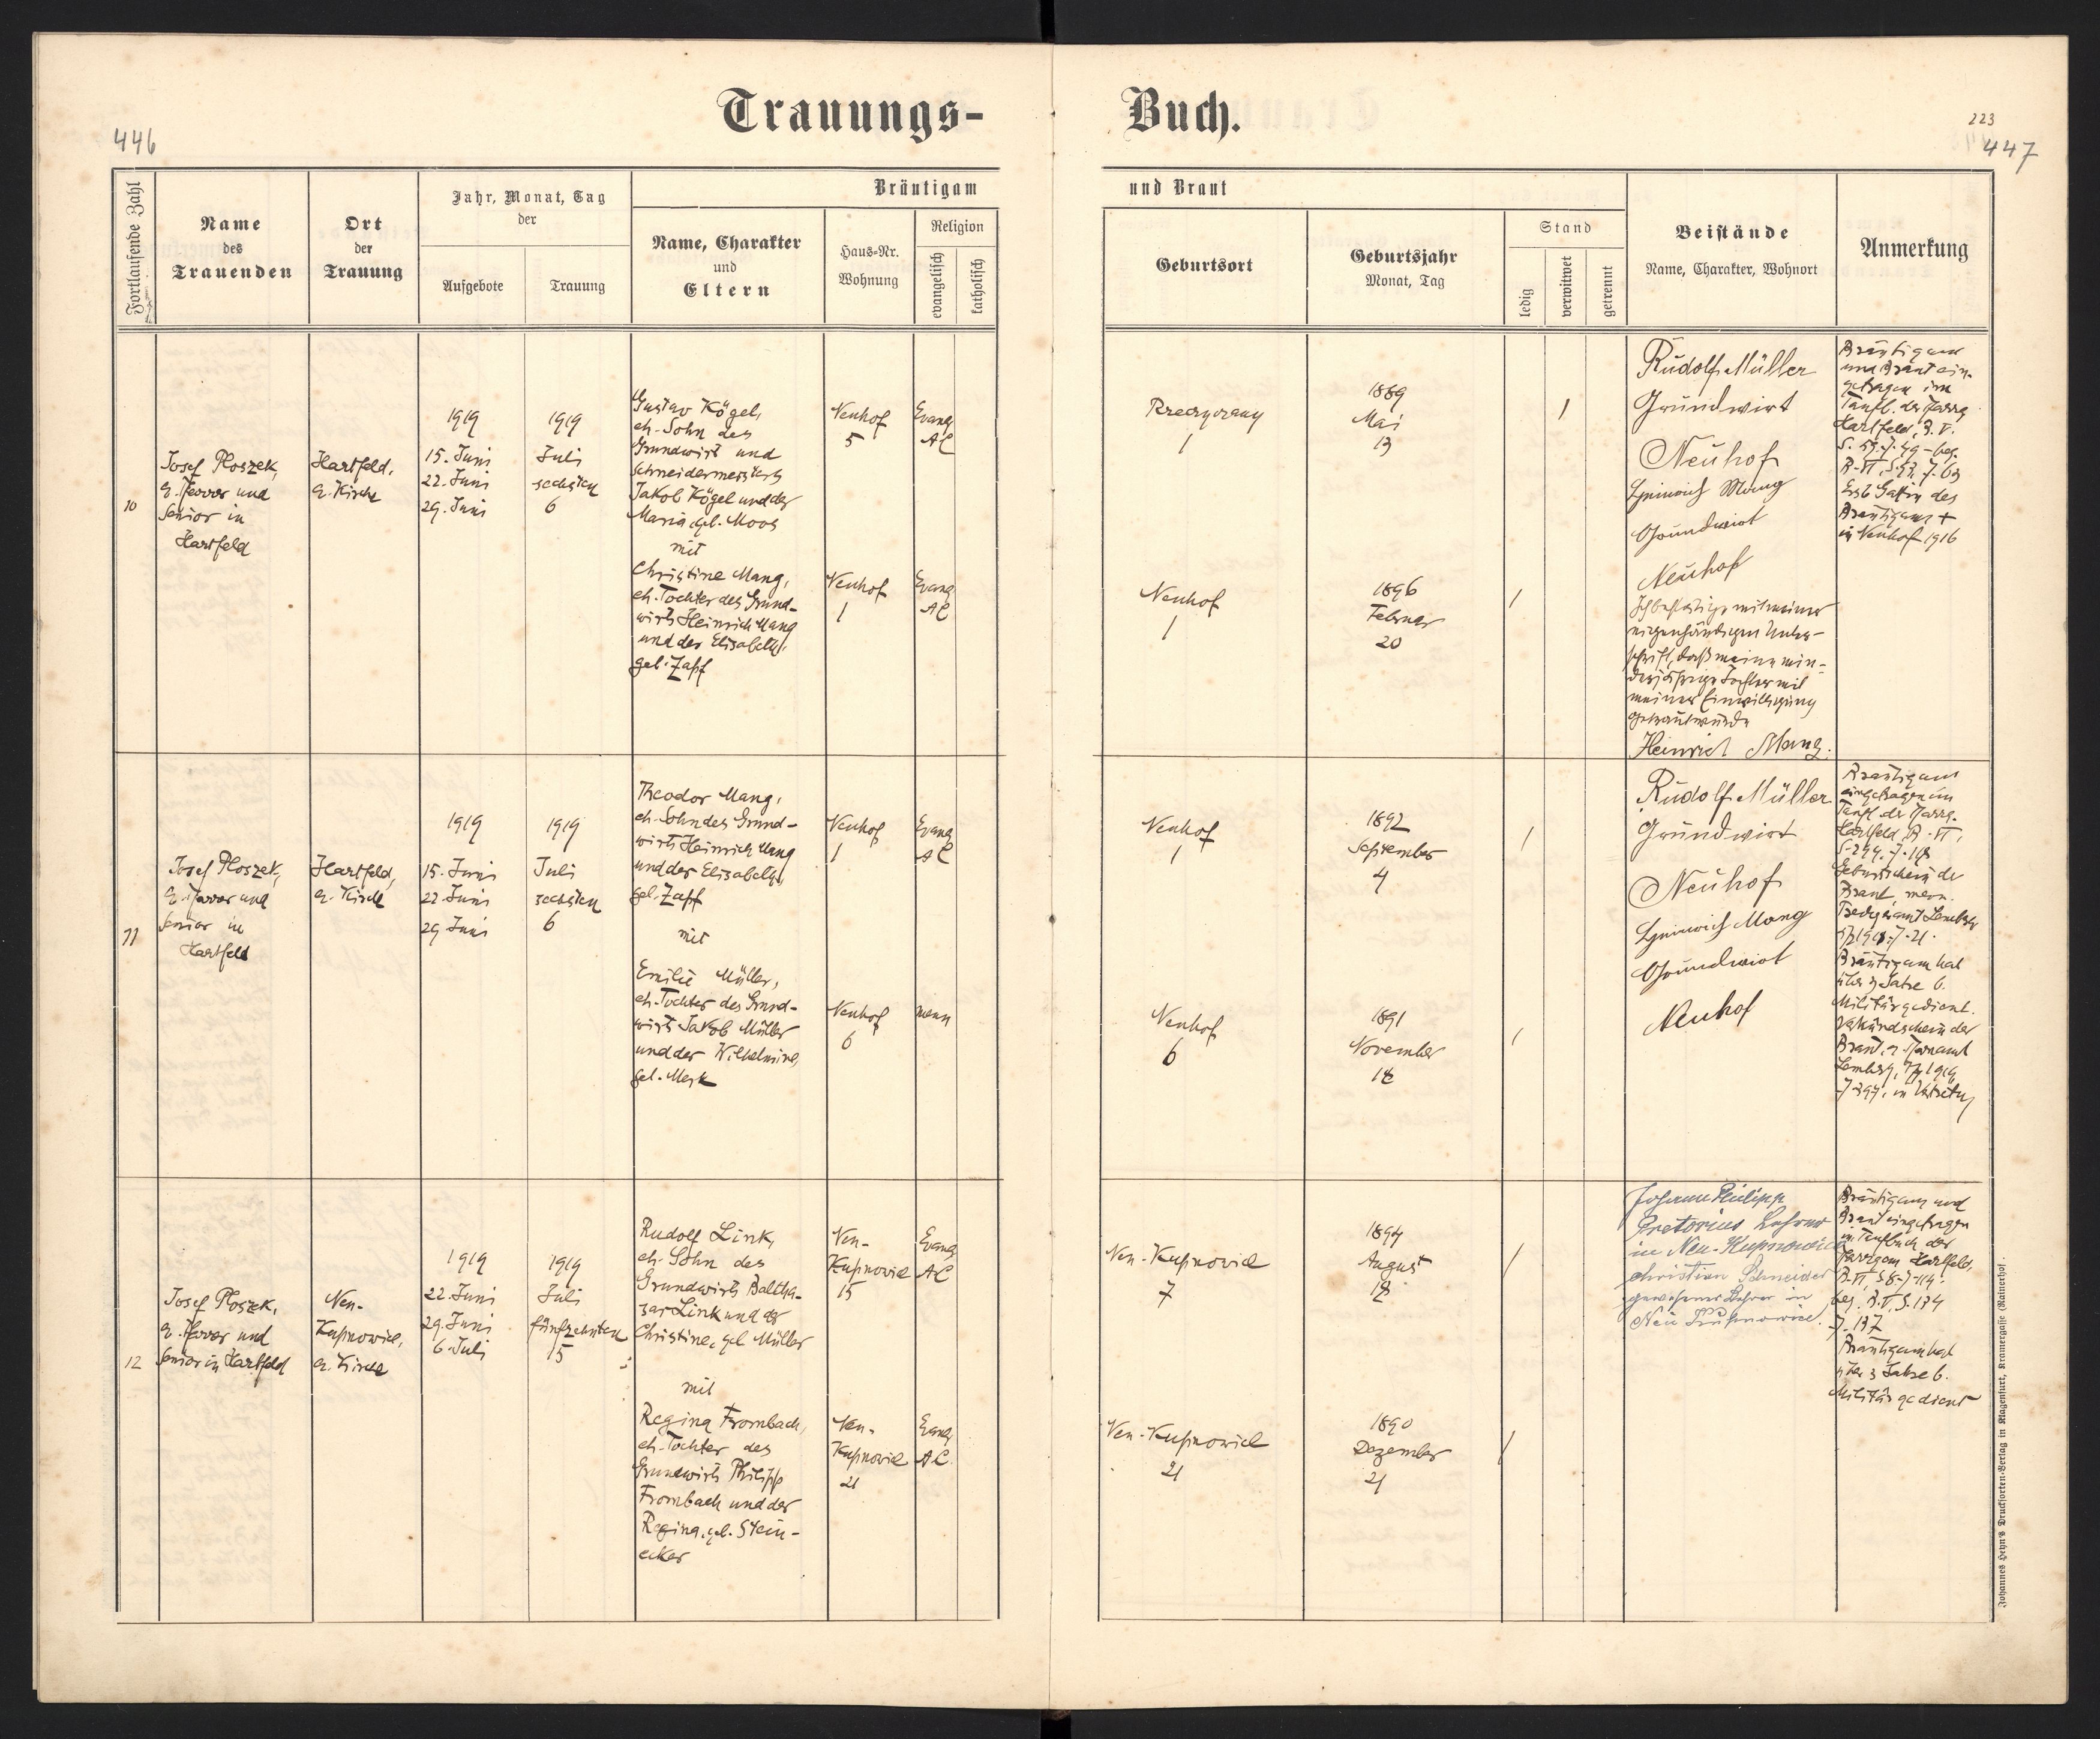 Trauungs-
Buch.
446
223
447
Fortlaufende Zahl
Name
des
Trauenden
Ort
der
Trauung
Jahr, Monat, Tag
der
Aufgebote
Trauung
Bräutigam
und Braut
Name, Charakter
und
Eltern
Haus-Nr.
Wohnung
Religion
evangelisch
katholisch
Geburtsort
Geburtsjahr
Monat, Tag
Stand
ledig
verwitwet
getrennt
Beistände
Name, Charakter, Wohnort
Anmerkung
10
Josef Ploszek,
e. Pfarrer und
Senior in
Hartfeld
Hartfeld,
e. Kirche
1919
15. Juni
22. Juni
29. Juni
1919
Juli
sechsten
6
Gustav Kögel,
eh. Sohn des
Grundwirt und
Schneidermeisters
Jakob Kögel und der
Maria, gel. Moos
mit
Christine Mang,
eh. Tochter des Grund-
wirts Heinrich Mang
und der Elisabeth,
gel. Zapf
Neuhof
5
Evang
AC
Neuhof
1
Evang
AC
1
1889
Mai
13
Neuhof
1
1896
Februar
20
Rudolf Müller
Grundwirt
Neuhof
Heinrich Mang
Grundwirt
Neuhof
Ich bestätige mit meiner
eigenhändigen Unter-
schrift, daß meine min-
derjährige Tochter mit
meiner Einwilligung
getraut wurde
Heinrich Mang.
Bräutigam
und Braut ein-
getragen im
Taufb. der Pfarrg.
Hartfeld, B. V.
Erste Gattin des
Bräutigams +
in Neuhof 1916
11
Josef Ploszek,
e. Pfarrer und
Senior in
Hartfeld
Hartfeld,
e. Kirche
1919
15. Juni
22. Juni
29. Juni
1919
Juli
sechsten
6
Theodor Mang,
eh. Sohn des Grund-
wirts Heinrich Mang
und der Elisabeth,
gel. Zapf
mit
Emilie Müller,
eh. Tochter des Grund-
wirts Jakob Müller
und der Wilhelmine,
gel. Merk
Neuhof
1
Evang
AC
Neuhof
6
menn
Neuhof
1
1892
September
4
Neuhof
6
1891
November
Rudolf Müller
Grundwirt
Neuhof
Heinrich Mang
Grundwirt
Neuhof
Bräutigam
eingetragen im
Taufb. der Pfarrg.
Hartfeld, B. VI,
Geburtschein der
Braut, menn.
Bräutigam hat
über 3 Jahre b.
Militär gedient.
Verkündschein der
Braut, e. Pfarramt
12
Josef Ploszek,
e. Pfarrer und
Senior in Hartfeld
Neu-
Kupnowice,
e. Kirche
1919
22. Juni
29. Juni
6. Juli
1919
Juli
fünfzehnten
15
Rudolf Link,
eh. Sohn des
Grundwirts Baltha-
sar Link und der
Christine, gel Müller
mit
Regina Frombach,
eh. Tochter des
Grundwirts Philipp
Frombach und der
Regina, gel. Stein-
ecker
Neu-
Kupnowice
15
Evang
AC
Neu-
Kupnowice
21
Evang
AC
Neu-Kupnowice
7
1894
August
Neu-Kupnowice
21
1890
Dezember
21
Johann Philipp
Pretorius Lehrer
in Neu-Kupnowice
Christian Schneider
gewesener Lehrer in
Neu Kupnowice.
Bräutigam und
Braut eingetragen
im Taufbuch der
Pfarrgem Hartfeld,
Bräutigam hat
über 3 Jahre b.
Militär gedient
Johannes Heyn's Drucksorten-Verlag in Klagenfurt, Kramergasse (Rainerhof.